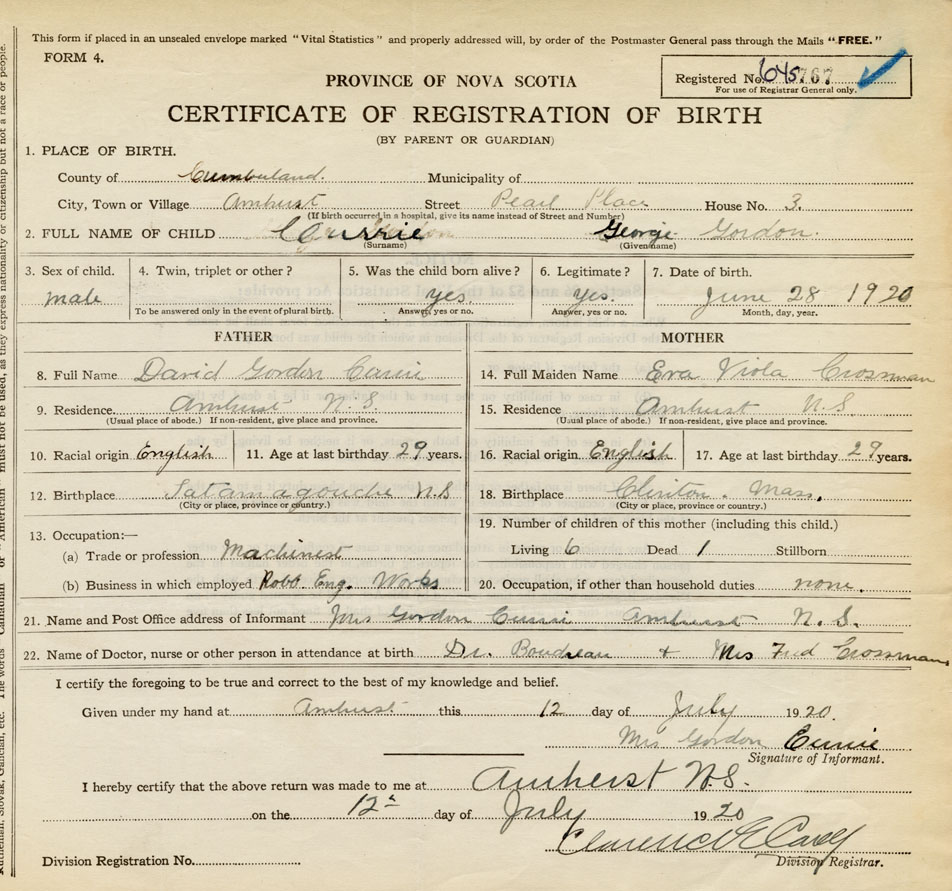 This form if placed in an unsealed envelope marked "Vital Statistics" and properly addressed will, by order of the Postmaster General pass through the Mails "FREE."
FORM 4.
PROVINCE OF NOVA SCOTIA
Registered No. 645767
For use of Registrar General only.
CERTIFICATE OF REGISTRATION OF BIRTH
(BY PARENT OR GUARDIAN)
1. PLACE OF BIRTH.
County of Cumberland. Municipality of
City, Town or Village Amherst Street Pearl Place House No. 3.
(If birth occurred in a hospital, give its name instead of Street and Number)
2. FULL NAME OF CHILD Currie George Gordon
(Surname) (Given name)
3. Sex of child. 4. Twin, triplet or other? 5. Was the child born alive? 6. Legitimate? 7. Date of birth.
male yes. yes. June 28 1920
To be answered only in the event of plural birth. Answer, yes or no. Answer, yes or no. Month, day, year.
FATHER MOTHER
8. Full Name David Gordon Currie 14. Full Maiden Name Eva Viola Crossman
9. Residence. Amherst N.S. 15. Residence Amherst N.S
(Usual place of abode.) If non-resident, give place and province. (Usual place of abode.) If non-resident, give place and province.
10. Racial origin English 11. Age at last birthday 29 years. 16. Racial origin English 17. Age at last birthday 29 years.
12. Birthplace Tatamagouche N.S 18. Birthplace Clinton. Mass.
(City or place, province or country.) (City or place, province or country.)
13. Occupation:— 19. Number of children of this mother (including this child.)
(a) Trade or profession Machinest Living 6 Dead 1 Stillborn
(b) Business in which employed Robb Eng. Works 20. Occupation, if other than household duties none.
21. Name and Post Office address of Informant Mrs Gordon Currie Amherst N.S.
22. Name of Doctor, nurse or other person in attendance at birth Dr. Boudreau + Mrs Fred Crossman
I certify the foregoing to be true and correct to the best of my knowledge and belief.
Given under my hand at Amherst this 12 day of July 1920.
Mrs Gordon Currie
Signature of Informant.
I hereby certify that the above return was made to me at Amherst N.S.
on the 12 day of July 1920
Clarence E
Division Registrar.
Division Registration No.